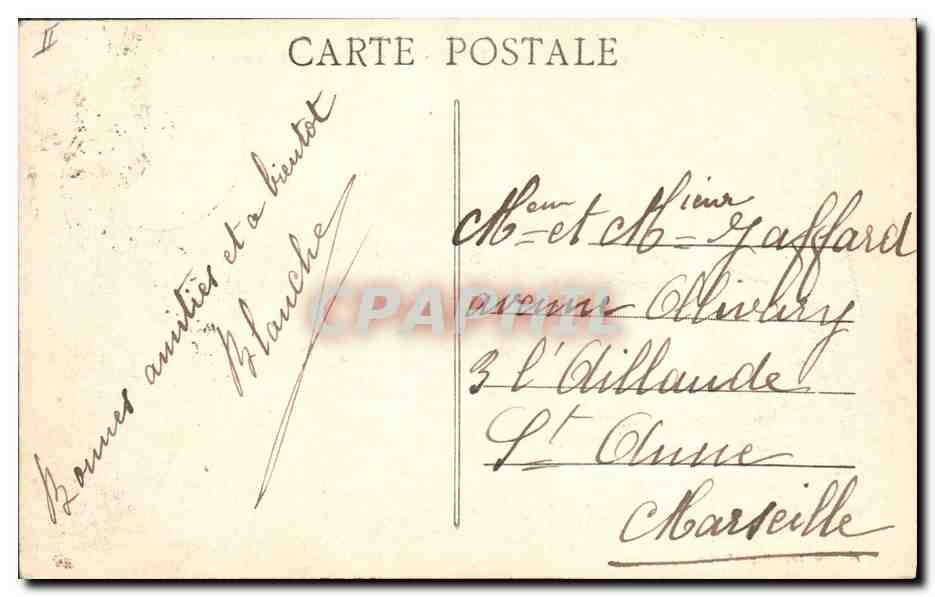 II
CARTE POSTALE
Bonnes amitiés et a bientot
Blanche
Meur et Mieur Gaffard
avenue Olivary
3 l'Aillaude
St Anne
Marseille
CPAPHIL